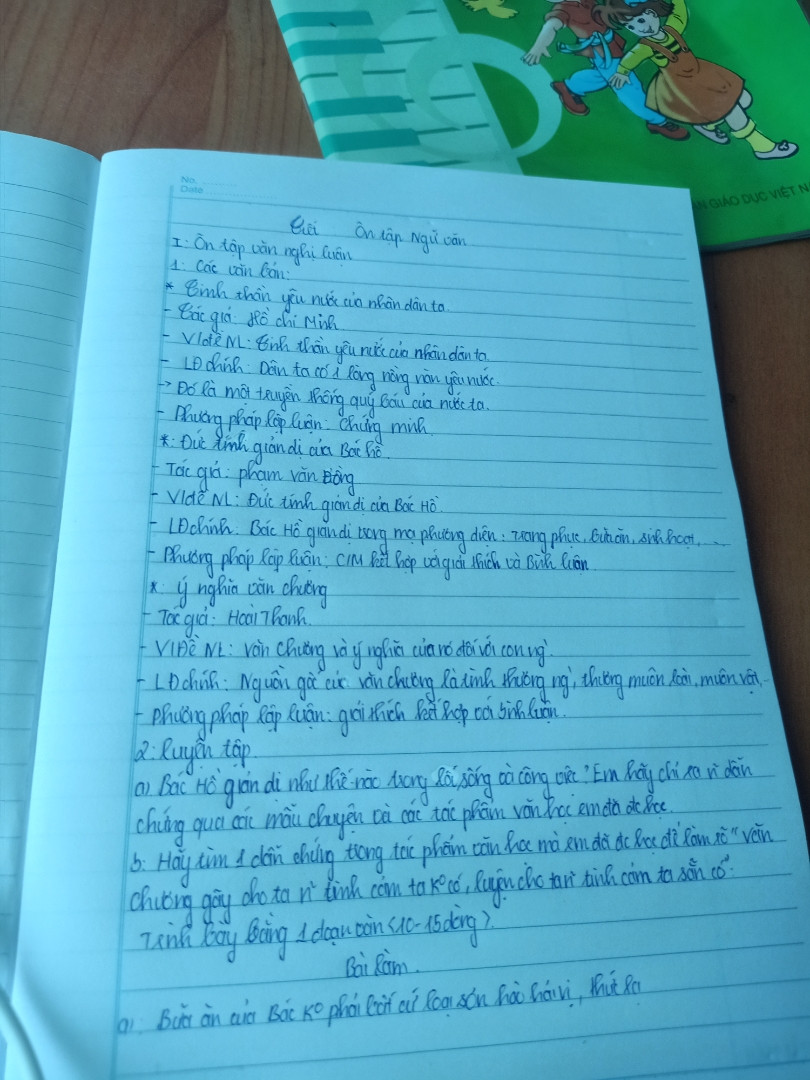 No.
Date
Tiết Ôn tập Ngữ văn
I: Ôn tập văn nghị luận
1: Các văn bản:
* Tinh thần yêu nước của nhân dân ta.
- Tác giả: Hồ Chí Minh
- V/đề NL: Tinh thần yêu nước của nhân dân ta.
- LĐ chính: Dân ta có 1 lòng nồng nàn yêu nước.
-> Đó là một truyền thống quý báu của nước ta.
- Phương pháp lập luận: Chứng minh
*: Đức tính giản dị của Bác hồ
- Tác giả: phạm văn Đồng
- V/đề NL: Đức tính giản dị của Bác Hồ.
- LĐ chính: Bác Hồ giản dị trong mọi phương diện: trang phục, bữa ăn, sinh hoạt, ...
- Phương pháp lập luận: C/M kết hợp với giải thích và Bình luận
*: ý nghĩa văn chương
- Tác giả: Hoài Thanh.
- V/ĐỀ NL: Văn chương và ý nghĩa của nó đối với con ng'.
- LĐ chính: Nguồn gốc của văn chương là tình thương ng', thương muôn loài, muôn vật,
- Phương pháp lập luận: giải thích kết hợp với bình luận.
2: Luyện tập
a) Bác Hồ giản dị như thế nào trong lối sống và công việc? Em hãy chỉ ra n~ dẫn
chứng qua các mẫu chuyện và các tác phẩm văn học em đã đc học.
b: Hãy tìm 1 dẫn chứng trong tác phẩm văn học mà em đã đc học để làm rõ "văn
chương gây cho ta n~ tình cảm ta ko có, luyện cho ta n~ tình cảm ta sẵn có".
Trình bày bằng 1 đoạn văn (10-15 dòng).
Bài làm.
a). Bữa ăn của Bác ko phải là sơn hào hải vị, thứ lạ
N GIÁO DỤC VIỆT N